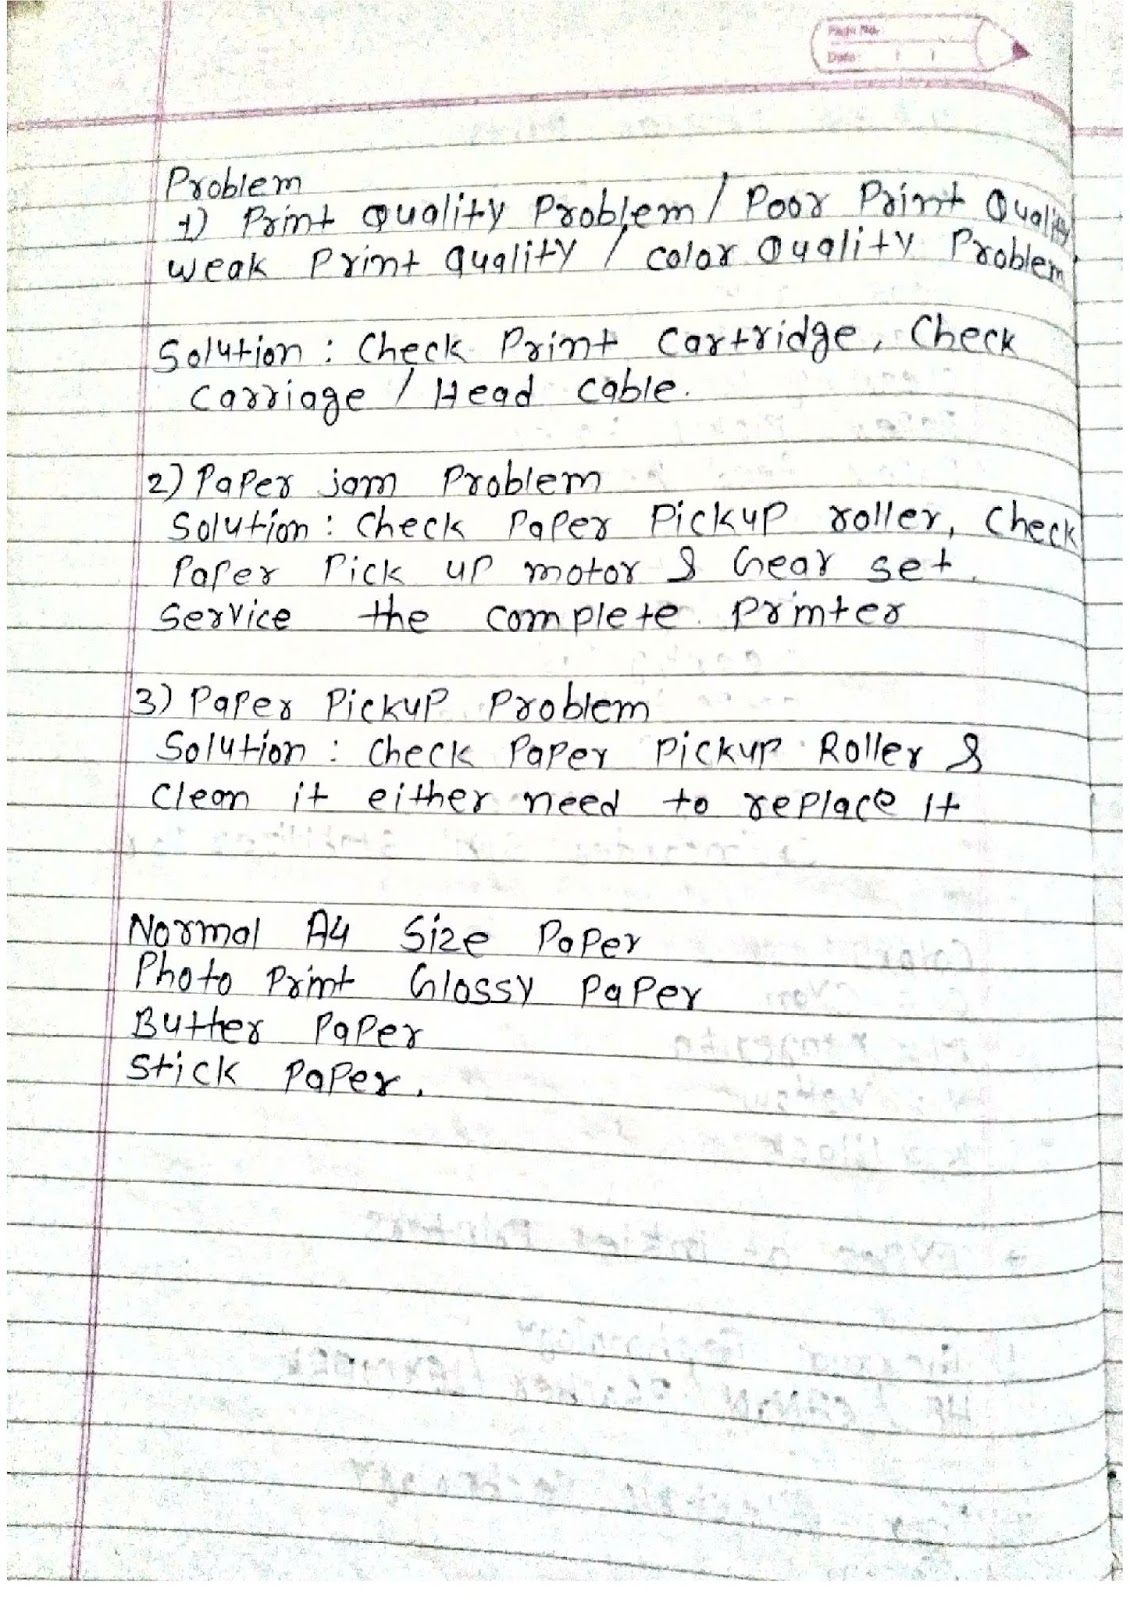 Page No.
Date:
Problem
1) Print Quality Problem / Poor Print Quality
weak Print Quality / color Quality Problem
Solution : Check Print Cartridge, Check
Carriage / Head cable.
2) Paper jam Problem
Solution : Check Paper Pickup roller, Check
Paper Pick up motor & Gear set.
Service the complete Printer
3) Paper Pickup Problem
Solution : Check Paper Pickup Roller &
Clean it either need to replace it
Normal A4 Size Paper
Photo Print Glossy Paper
Butter Paper
Stick Paper.